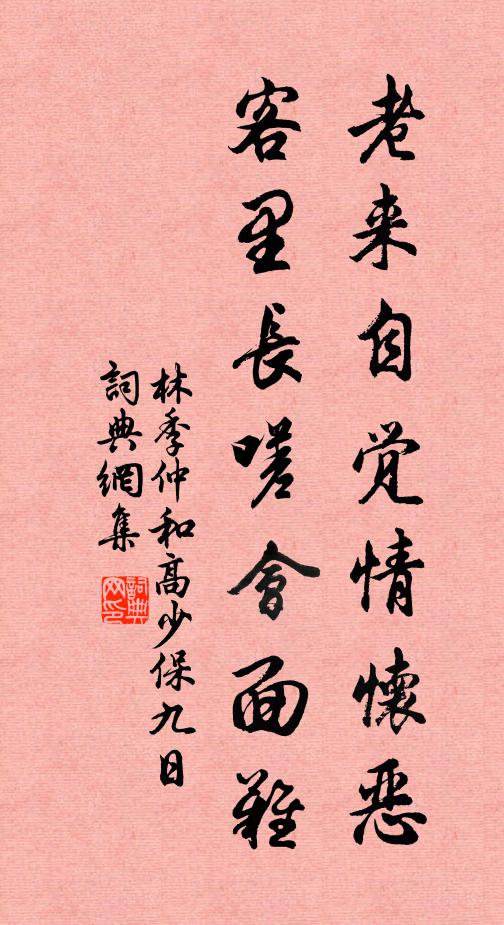 老来自觉情懷恶
客里長嗟會面難
林季仲和高少保九日
詞典網集
詞典網印